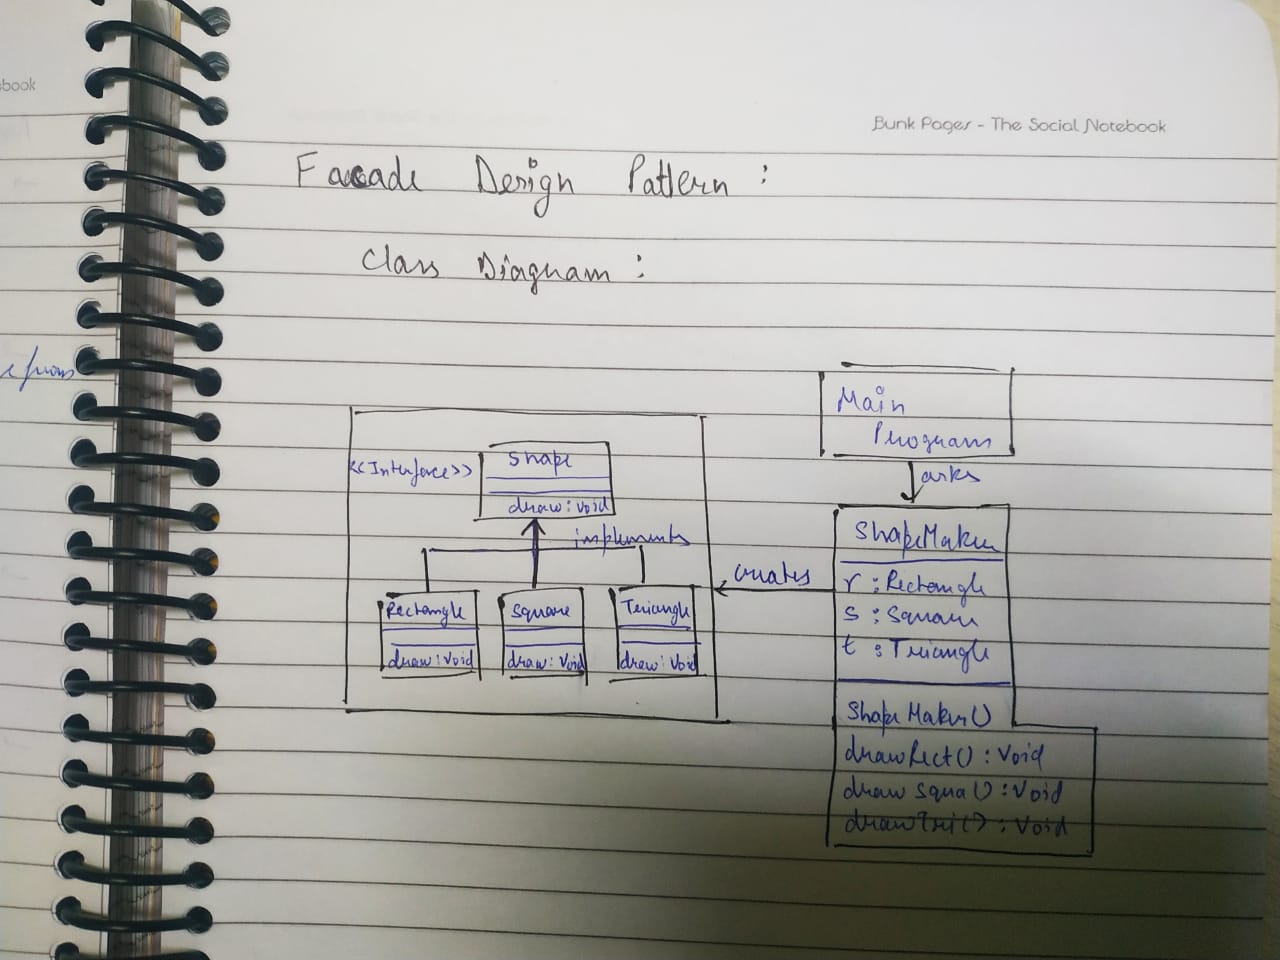 book
Bunk Pages - The Social Notebook
Facade Design Pattern :
Class Diagram :
Main
Program
asks
<<Interface>>
Shape
draw : Void
implements
Rectangle
draw : Void
Square
draw : Void
Triangle
draw : Void
creates
ShapeMaker
r : Rectangle
s : Square
t : Triangle
ShapeMaker()
drawRect() : Void
drawSqua() : Void
drawTri() : Void